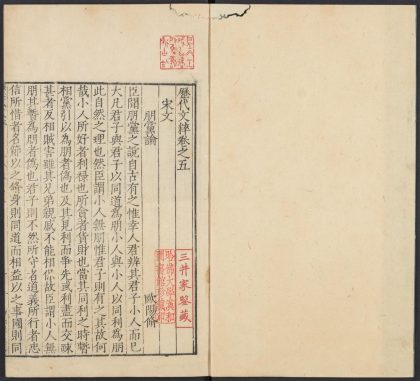 歷代文粹卷之五
宋文
朋黨論
歐陽脩
臣聞朋黨之說自古有之惟幸人君辨其君子小人而已
大凡君子與君子以同道為朋小人與小人以同利為朋
此自然之理也然臣謂小人無朋惟君子則有之其故何
哉小人所好者利祿也所貪者貨財也當其同利之時暫
相黨引以為朋者偽也及其見利而爭先或利盡而交疎
甚者反相賊害雖其兄弟親戚不能相保故臣謂小人無
朋其暫為朋者偽也君子則不然所守者道義所行者忠
信所惜者名節以之脩身則同道而相益以之事國則同
三井家鑒藏
哈佛大學漢和
圖書館珍藏印